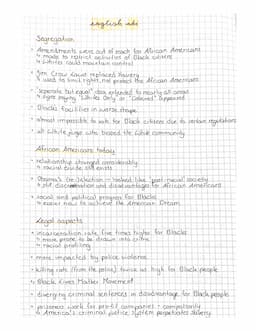 english abi
Segregation
• Amendments were out of reach for African Americans
↳ made to restrict activities of Black citizens
↳ Whites could maintain control
• Jim Crow Laws replaced slavery
↳ used to limit rights, not protect the African Americans
• "separate but equal" idea extended to nearly all areas
↳ signs saying "Whites Only" or "Coloured" appeared
• Blacks' facilities in worse shape
• almost impossible to vote for Black citizens due to certain regulations
• all white juries who biased the white community
African Americans today
• relationship changed considerably
↳ racial divide still exists
• Obama's (re-)election → looked like "post-racial" society
↳ still discrimination and disadvantages for African Americans
• social and political progress for Blacks
↳ easier now to achieve the American Dream
Legal aspects
• incarceration rate five times higher for Blacks
↳ more prone to be drawn into crime
↳ racial profiling
• more impacted by police violence
• killing rate (from the police) twice as high for Black people
• Black Lives Matter Movement
• diverging criminal sentences in disadvantage for Black people
• prisoners work for profit companies + compulsorily
↳ America's criminal justice system perpetuates slavery